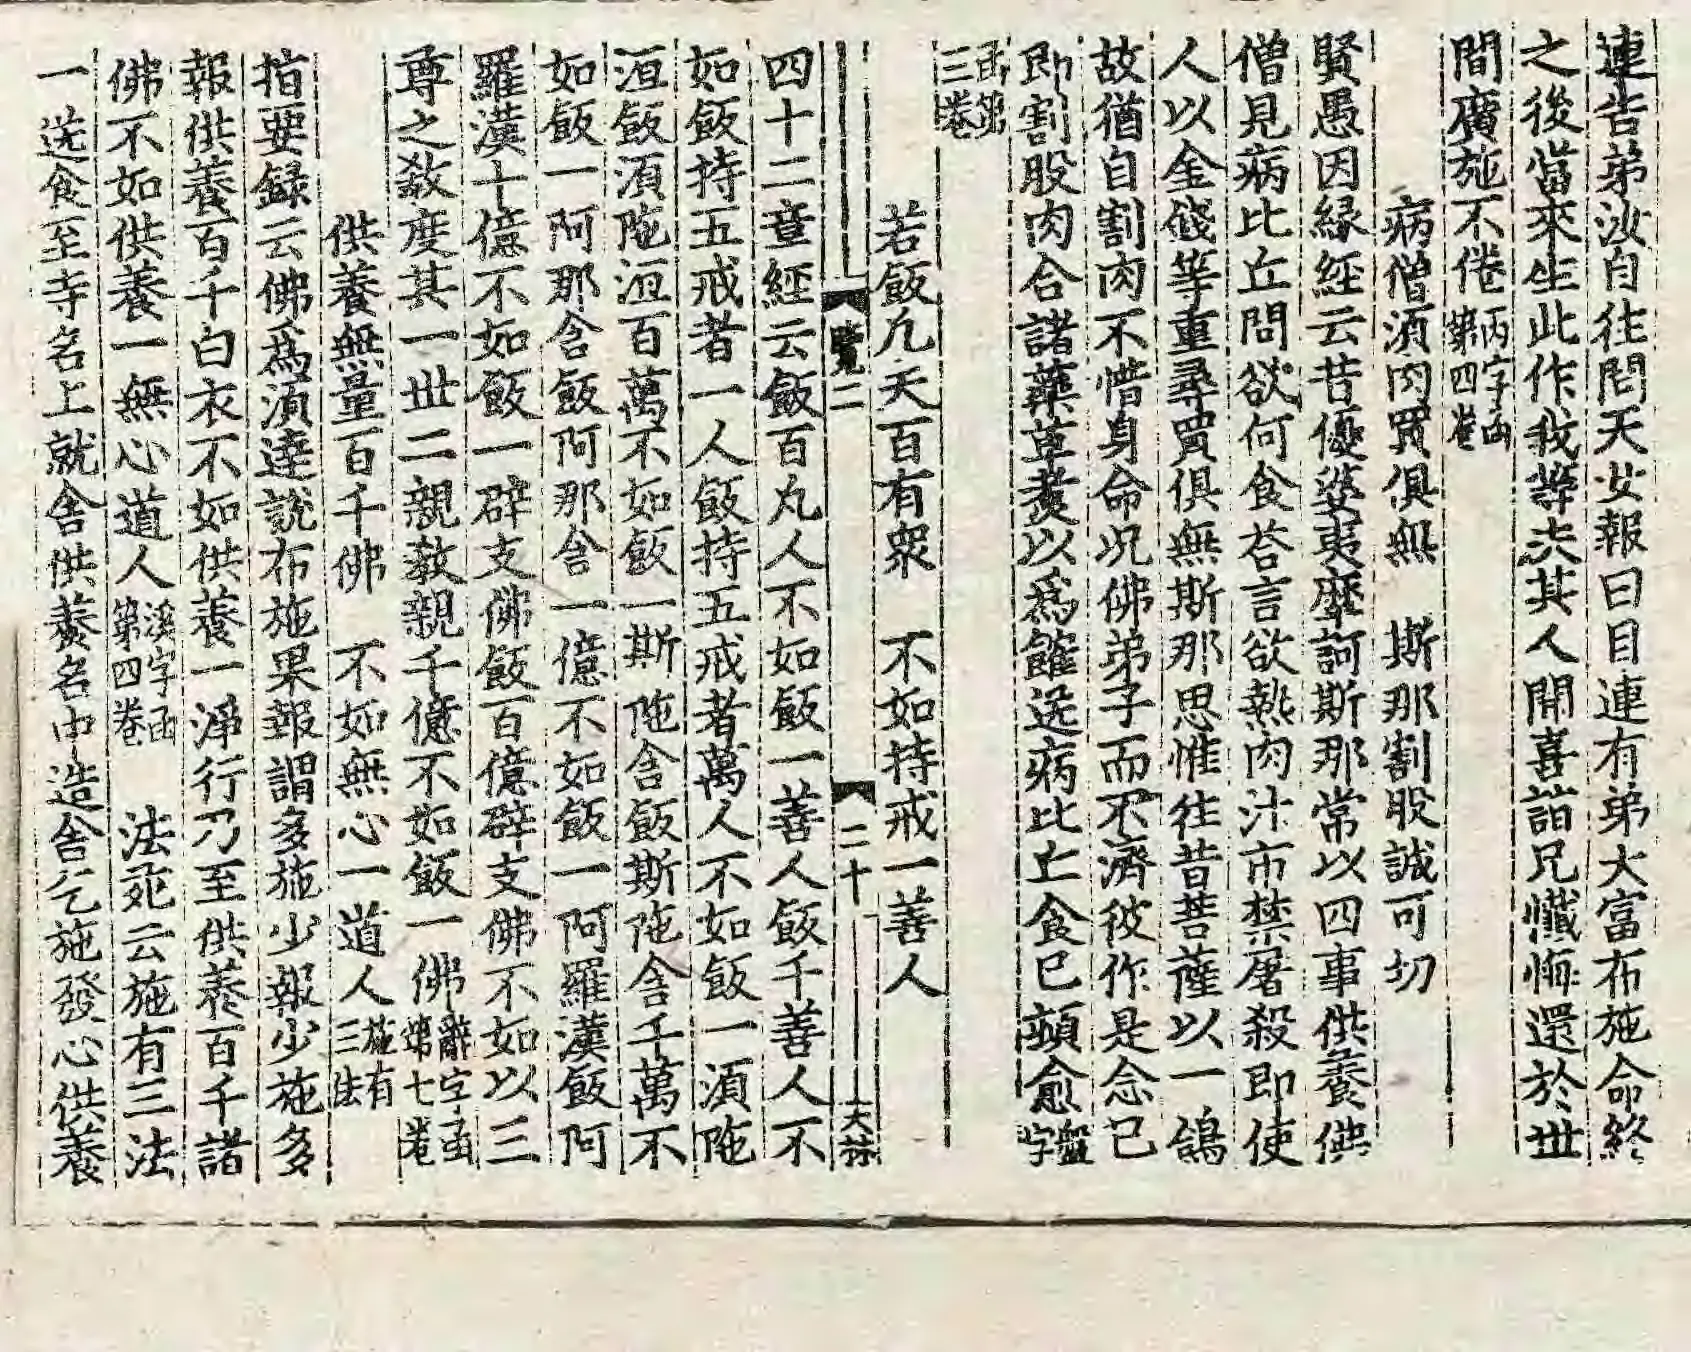 連告弟汝自往問天女報曰目連有弟大富布施命終
之後當來生此作我等夫其人聞喜詣兄懺悔還於世
間廣施不倦丙字函第四卷
病僧須肉買俱無　斯那割股誠可切
賢愚因緣經云昔優婆夷摩訶斯那常以四事供養供
僧見病比丘問欲何食荅言欲熱肉汁市禁屠殺即使
人以金錢等重尋買俱無斯那思惟往昔菩薩以一鴿
故猶自割肉不惜身命况佛弟子而不濟彼作是念已
即割股肉合諸藥草煑以爲饍送病比丘食已頓愈盤字
函第三卷
若飯凢夭百有衆　不如持戒一善人
覽二　二十　大菻
四十二章經云飯百凢人不如飯一善人飯千善人不
如飯持五戒者一人飯持五戒者萬人不如飯一湏陁
洹飯湏陁洹百萬不如飯一斯陁含飯斯陁含千萬不
如飯一阿那含飯阿那含一億不如飯一阿羅漢飯阿
羅漢十億不如飯一辟支佛飯百億辟支佛不如以三
尊之敎度其一世二親敎親千億不如飯一佛辭字函第七卷
供養無量百千佛　不如無心一道人施有三法
指要録云佛爲湏達說布施果報謂多施少報少施多
報供養百千白衣不如供養一淨行乃至供養百千諸
佛不如供養一無心道人溪字函第四卷　法苑云施有三法
一送食至寺名上就舍供養名中造舍乞施發心供養